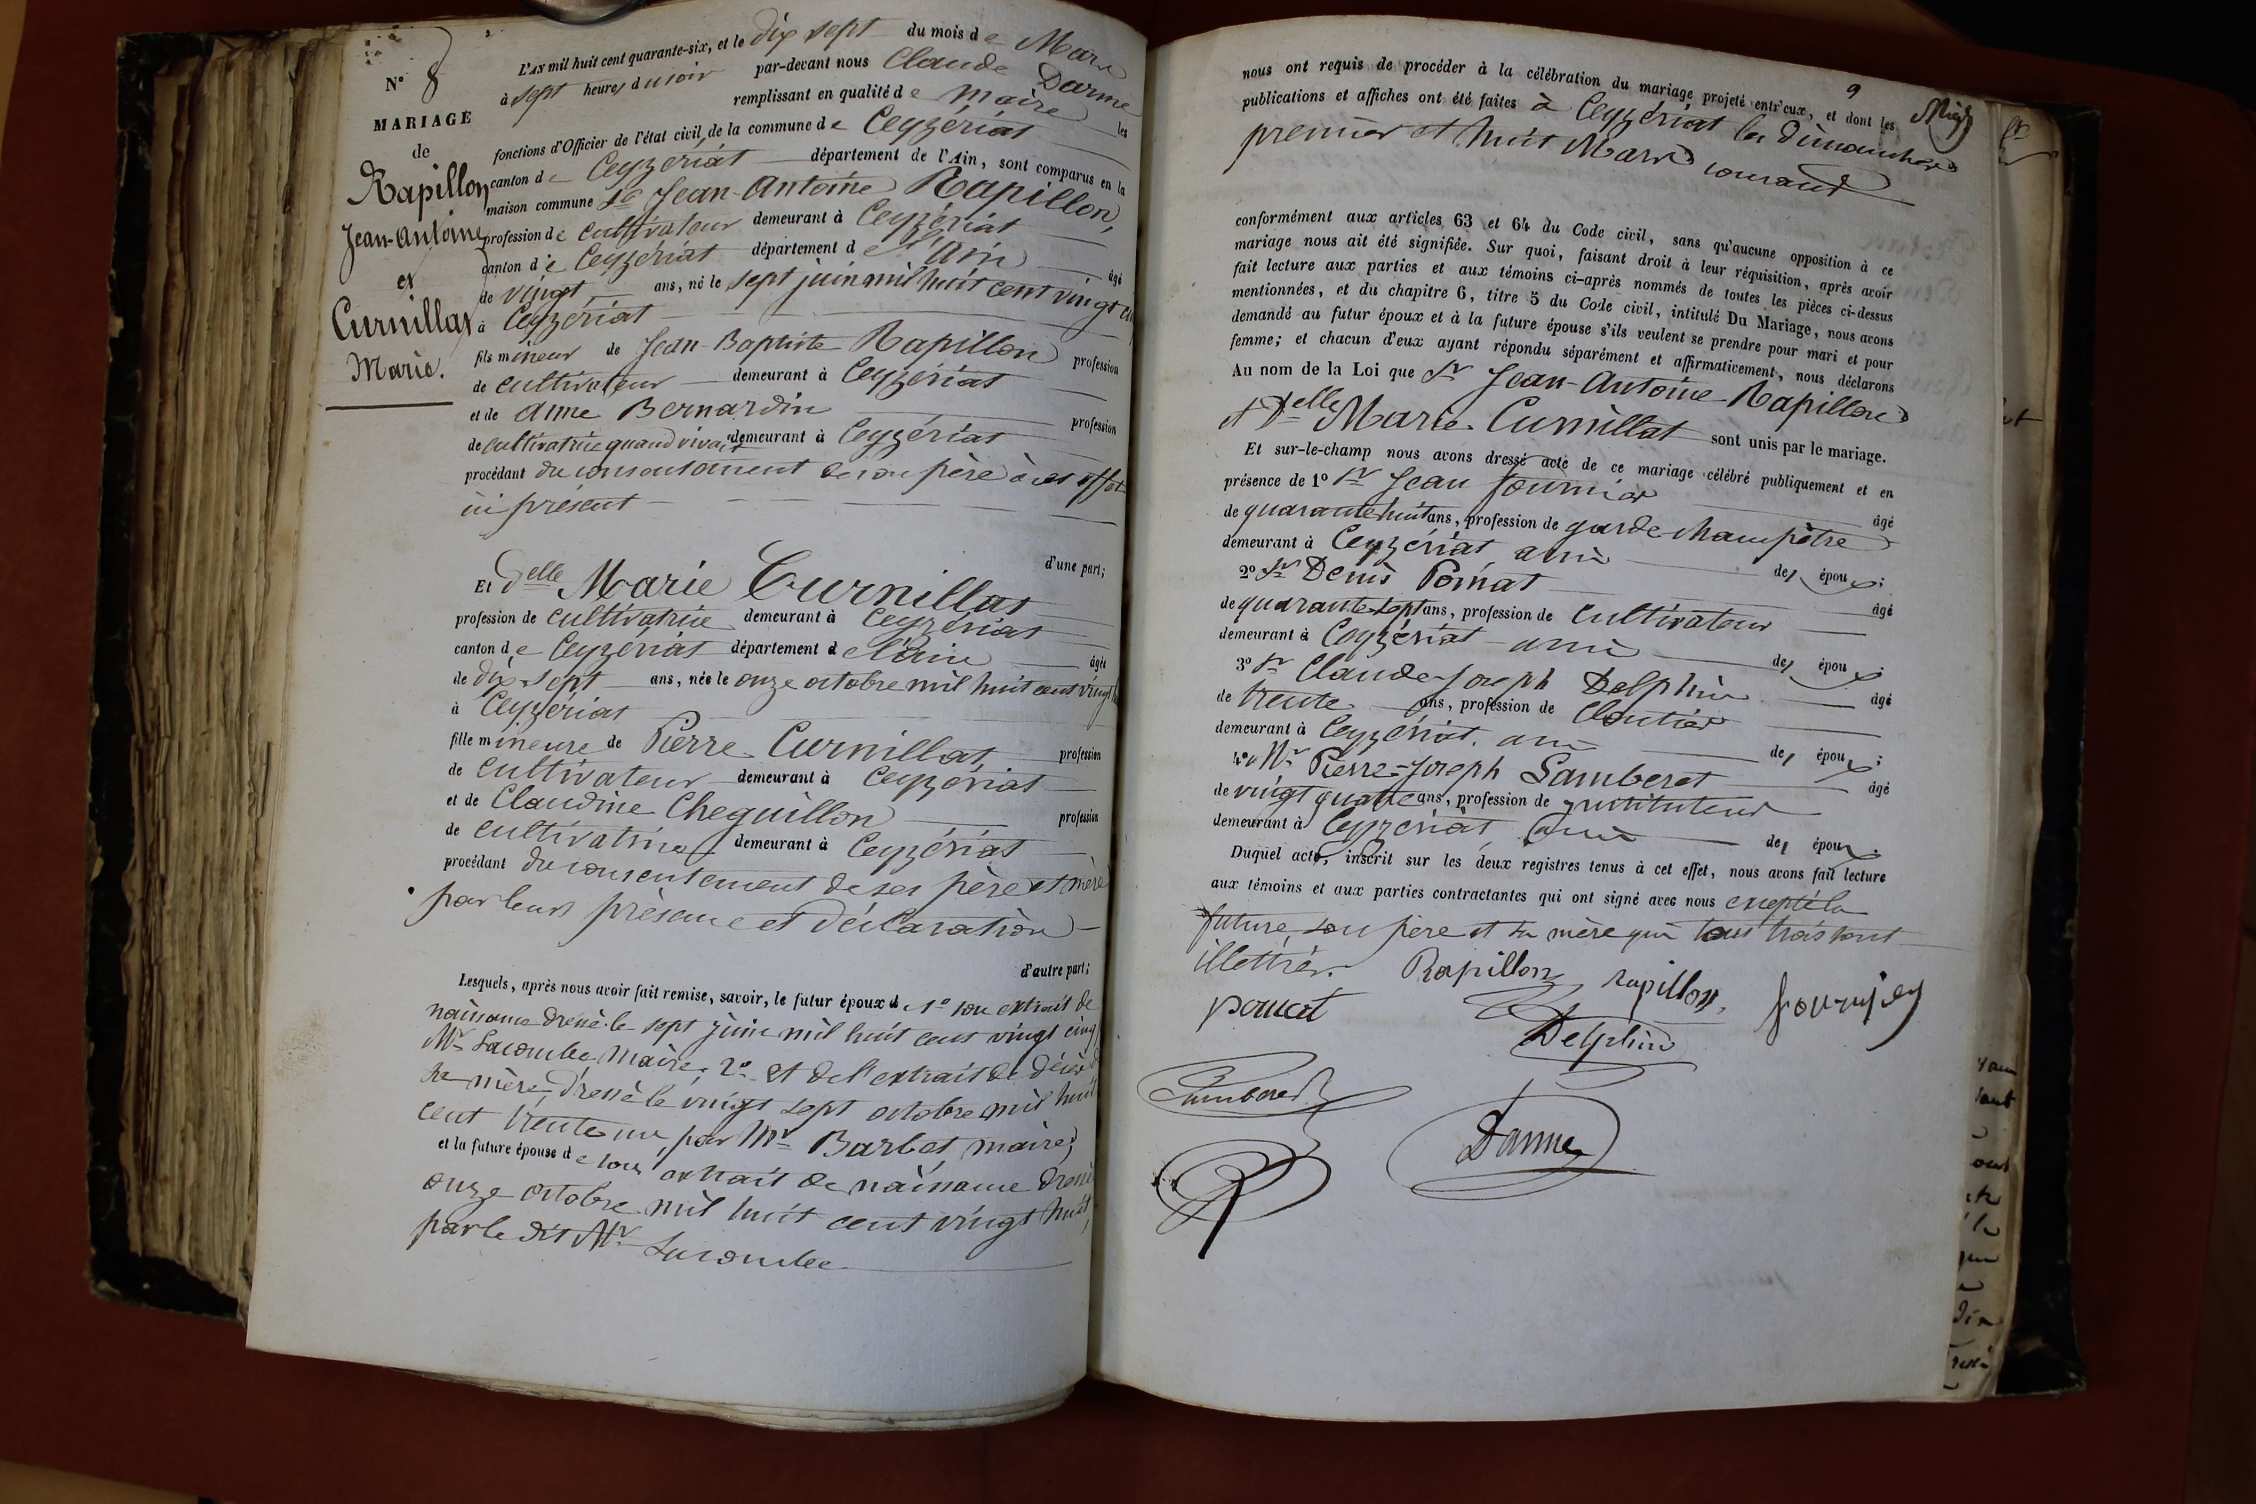 N° 8
MARIAGE
de
Rapillon
Jean-Antoine
et
Curnillat
Marie.
L'AN mil huit cent quarante-six, et le dix sept du mois de Mars
à sept heures du soir par-devant nous Claude Darme
remplissant en qualité de Maire les
fonctions d'Officier de l'état civil, de la commune de Ceyzériat
canton de Ceyzériat département de l'Ain, sont comparus en la
maison commune Sr Jean-Antoine Rapillon,
profession de cultivateur demeurant à Ceyzériat
canton de Ceyzériat département de l'Ain âgé
de vingt ans, né le sept juin mil huit cent vingt cinq
à Ceyzériat
fils mineur de Jean-Baptiste Rapillon profession
de cultivateur demeurant à Ceyzériat
et de Anne Bernardin profession
de cultivatrice quand vivait demeurant à Ceyzériat
procédant du consentement de son père à cet effet
ici présent
d'une part;
Et Delle Marie Curnillat
profession de cultivatrice demeurant à Ceyzériat
canton de Ceyzériat département de l'Ain âgée
de dix-sept ans, née le onze octobre mil huit cent vingt
à Ceyzériat
fille mineure de Pierre Curnillat profession
de cultivateur demeurant à Ceyzériat
et de Claudine Cheguillon profession
de cultivatrice demeurant à Ceyzériat
procédant du consentement de ses père et mère
par leurs présence et déclaration
d'autre part;
Lesquels, après nous avoir fait remise, savoir, le futur époux de 1° son extrait de
naissance dressé le sept juin mil huit cent vingt cinq
Mr Lacombe Maire. 2° et de l'extrait de décès de
sa mère dressé le vingt sept octobre mil huit
cent trente un par Mr Barbet maire;
et la future épouse de son extrait de naissance dressé
onze octobre mil huit cent vingt huit,
par le dit Mr Lacombe
9
nous ont requis de procéder à la célébration du mariage projeté entr'eux, et dont les
publications et affiches ont été faites à Ceyzériat les dimanches
premier et huit Mars courant
conformément aux articles 63 et 64 du Code civil, sans qu'aucune opposition à ce
mariage nous ait été signifiée. Sur quoi, faisant droit à leur réquisition, après avoir
fait lecture aux parties et aux témoins ci-après nommés de toutes les pièces ci-dessus
mentionnées, et du chapitre 6, titre 5 du Code civil, intitulé Du Mariage, nous avons
demandé au futur époux et à la future épouse s'ils veulent se prendre pour mari et pour
femme; et chacun d'eux ayant répondu séparément et affirmativement, nous déclarons
Au nom de la Loi que Sr Jean-Antoine Rapillon
et Delle Marie Curnillat sont unis par le mariage.
Et sur-le-champ nous avons dressé acte de ce mariage célébré publiquement et en
présence de 1° Sr Jean Fournier âgé
de quarante huit ans, profession de garde champêtre
demeurant à Ceyzériat ami des époux;
2° Sr Denis Poinat âgé
de quarante-sept ans, profession de cultivateur
demeurant à Ceyzériat ami des époux;
3° Sr Claude-Joseph Delphin âgé
de trente ans, profession de Cloutier
demeurant à Ceyzériat. ami des époux;
4° Mr Pierre-Joseph Lamberet âgé
de vingt quatre ans, profession de instituteur
demeurant à Ceyzériat ami des époux.
Duquel acte, inscrit sur les deux registres tenus à cet effet, nous avons fait lecture
aux témoins et aux parties contractantes qui ont signé avec nous excepté la
future, son père et sa mère qui tous trois sont
illettrés.
Rapillon rapillon, fournier
Delphin
Lamberet
Darme